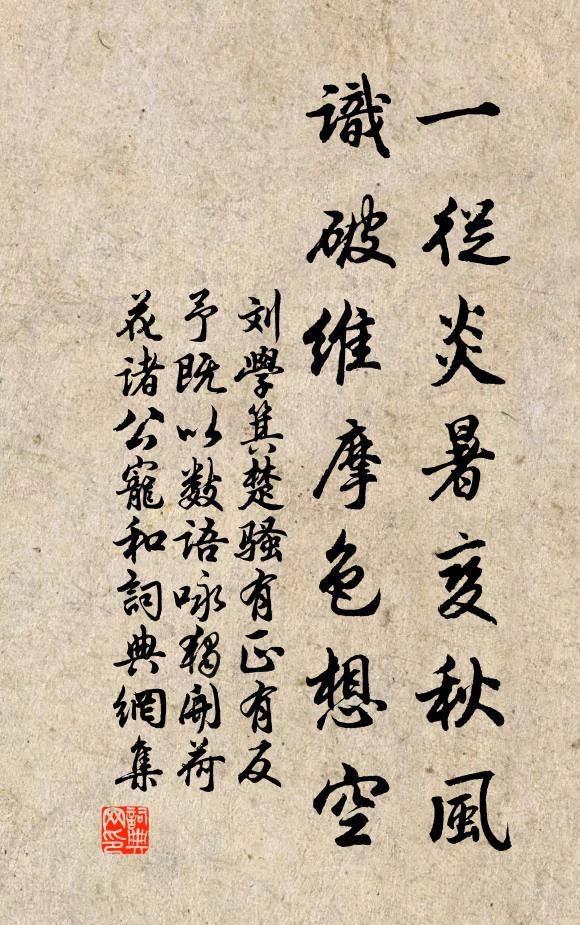 一從炎暑变秋風
識破維摩色想空
刘學箕楚骚有正有反
予既以数语咏独開荷
花诸公寵和詞典網集
詞典
网印